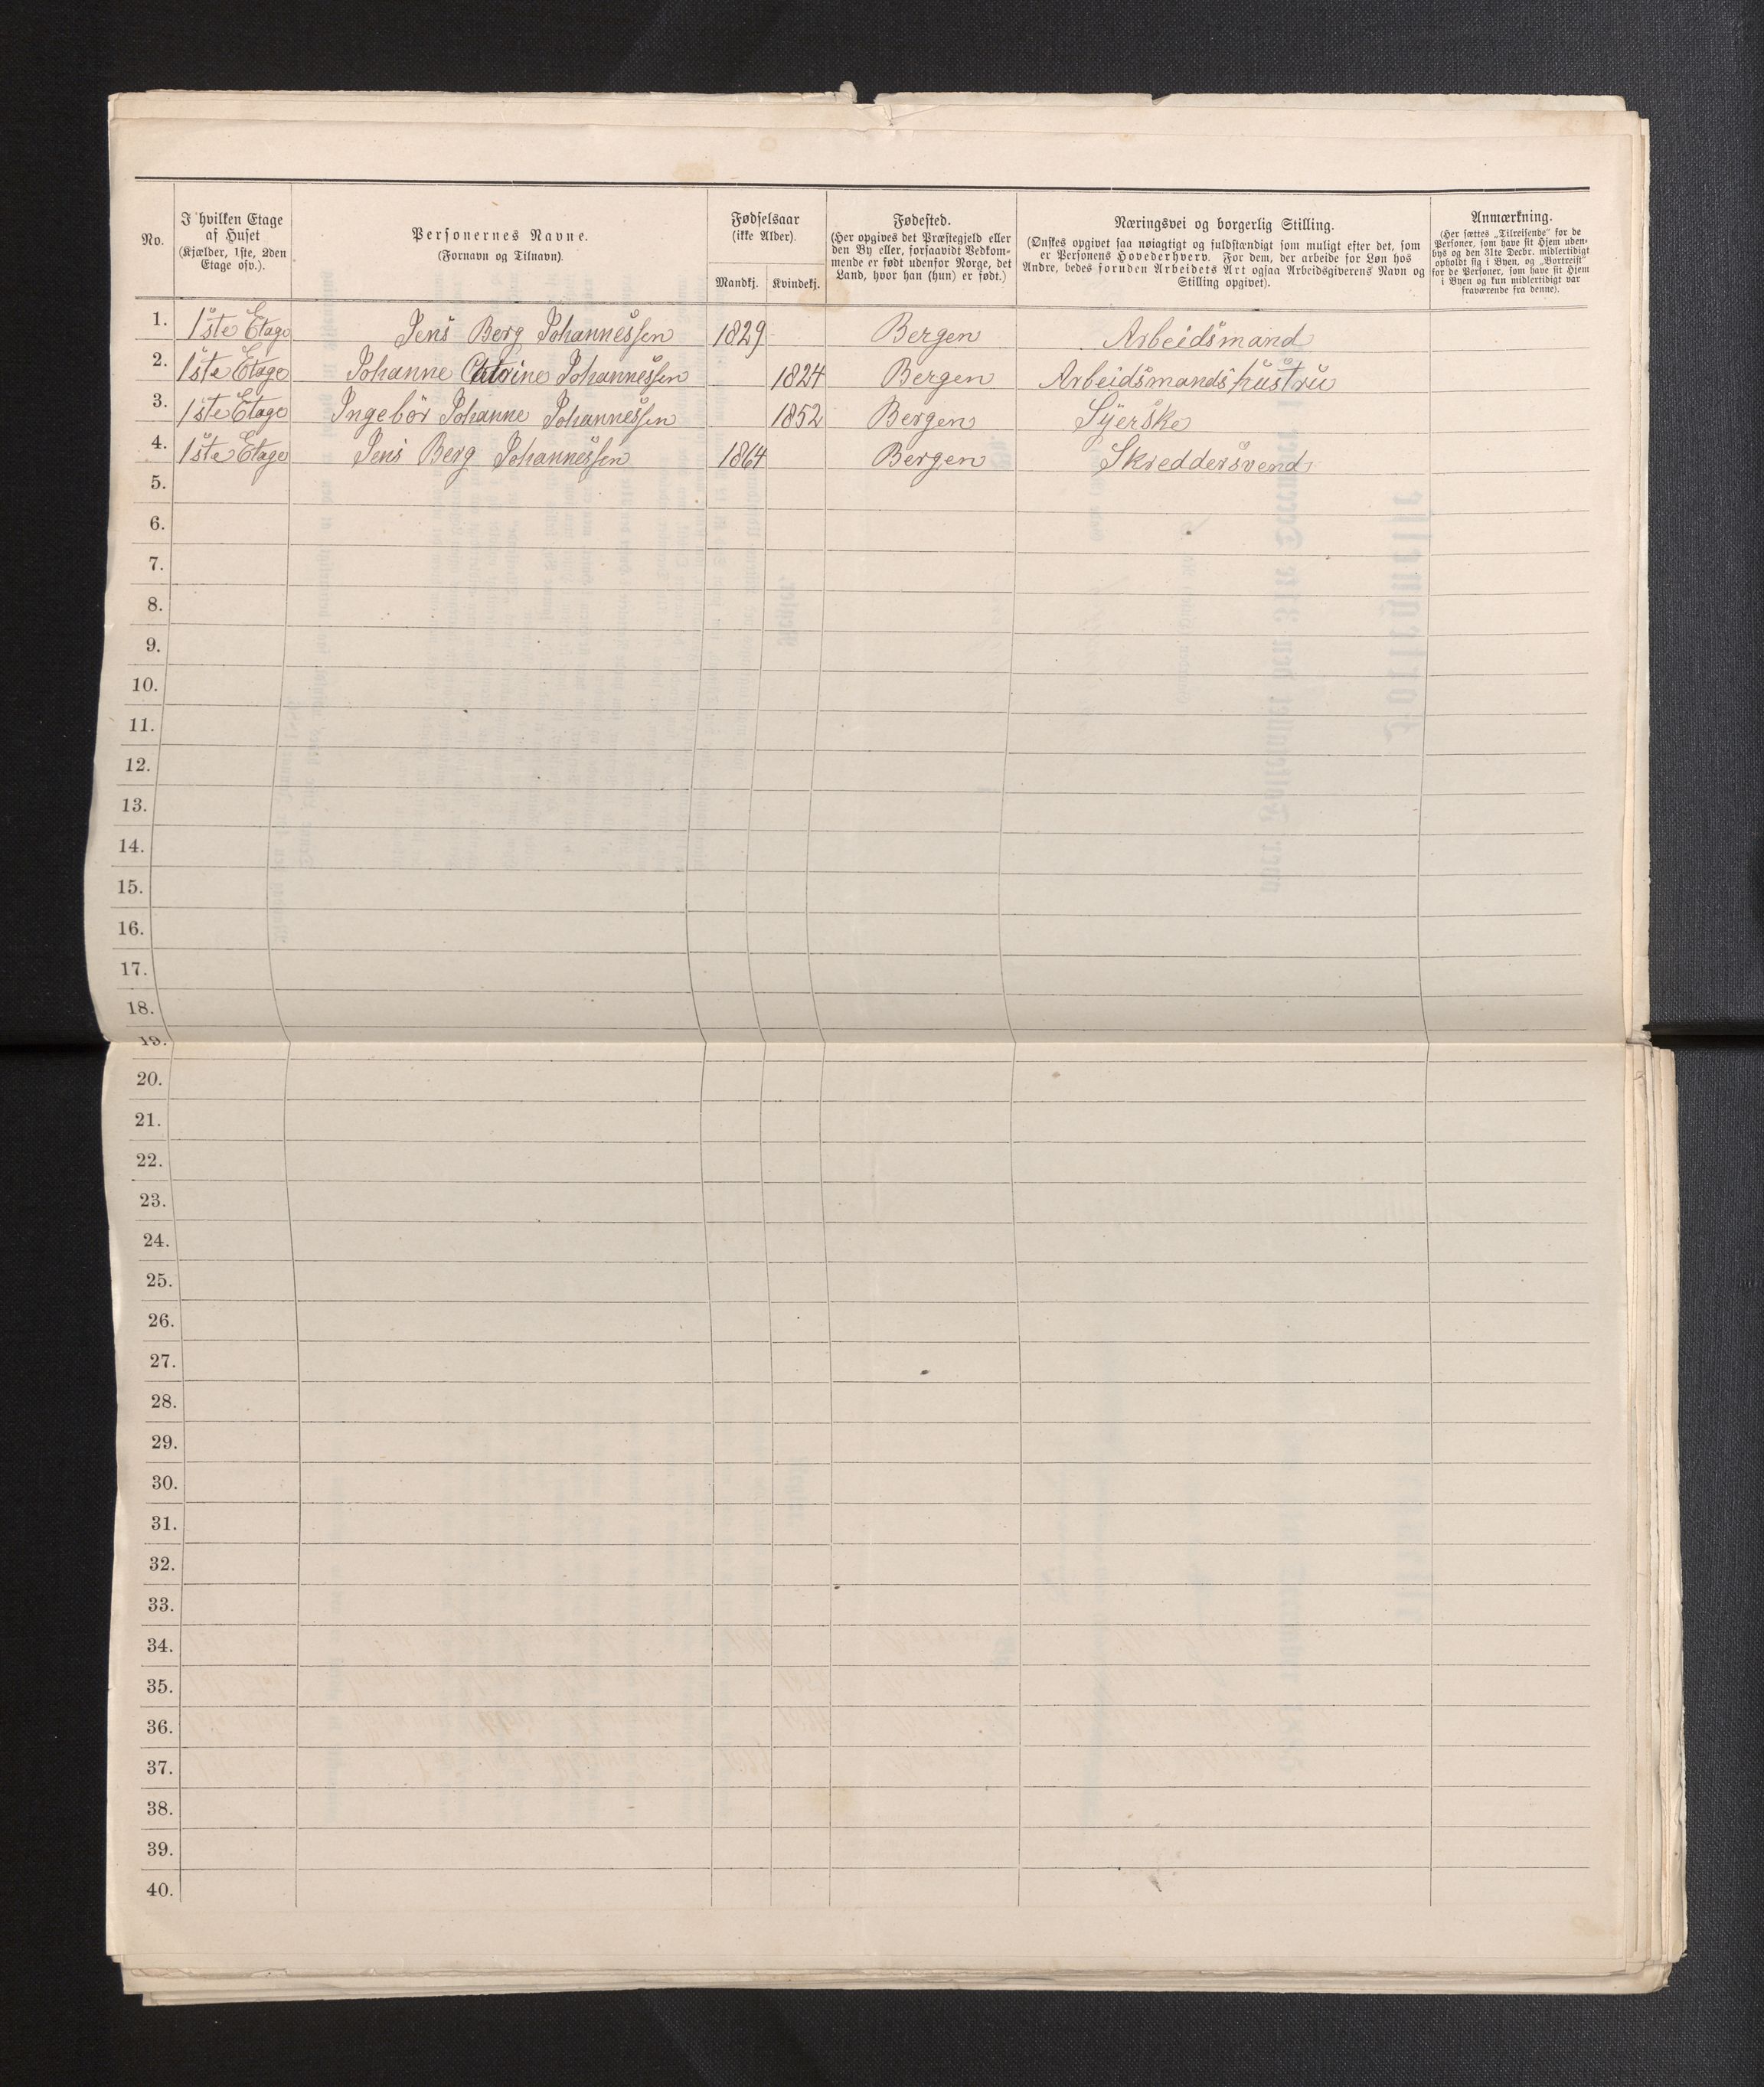 No.
I hvilken Etage
af Huset
(Kjælder, 1ste, 2den
Etage osv.).
Personernes Navne.
(Fornavn og Tilnavn).
Fødselsaar
(ikke Alder).
Mandkj. Kvindekj.
Fødested.
(Her opgives det Præstegjeld eller
den By eller, forsaavidt Vedkom-
mende er født udenfor Norge, det
Land, hvor han (hun) er født.)
Næringsvei og borgerlig Stilling.
(Ønskes opgivet saa nøiagtigt og fuldstændigt som muligt efter det, som
er Personens Hovederhverv. For dem, der arbeide for Løn hos
Andre, bedes foruden Arbeidets Art ogsaa Arbeidsgiverens Navn og
Stilling opgivet).
Anmærkning.
(Her sættes „Tilreisende“ for de
Personer, som have sit Hjem uden-
bys og den 31te Decbr. midlertidigt
opholdt sig i Byen, og „Bortreist“
for de Personer, som have sit Hjem
i Byen og kun midlertidigt var
fraværende fra denne).
1. 1ste Etage Jens Berg Johannessen 1829 Bergen Arbeidsmand
2. 1ste Etage Johanne Johannessen 1824 Bergen Arbeidsmands hustru
3. 1ste Etage Ingebör Johanne Johannessen 1852 Bergen Syerske
4. 1ste Etage Jens Berg Johannessen 1864 Bergen Skreddersvend
5.
6.
7.
8.
9.
10.
11.
12.
13.
14.
15.
16.
17.
18.
19.
20.
21.
22.
23.
24.
25.
26.
27.
28.
29.
30.
31.
32.
33.
34.
35.
36.
37.
38.
39.
40.